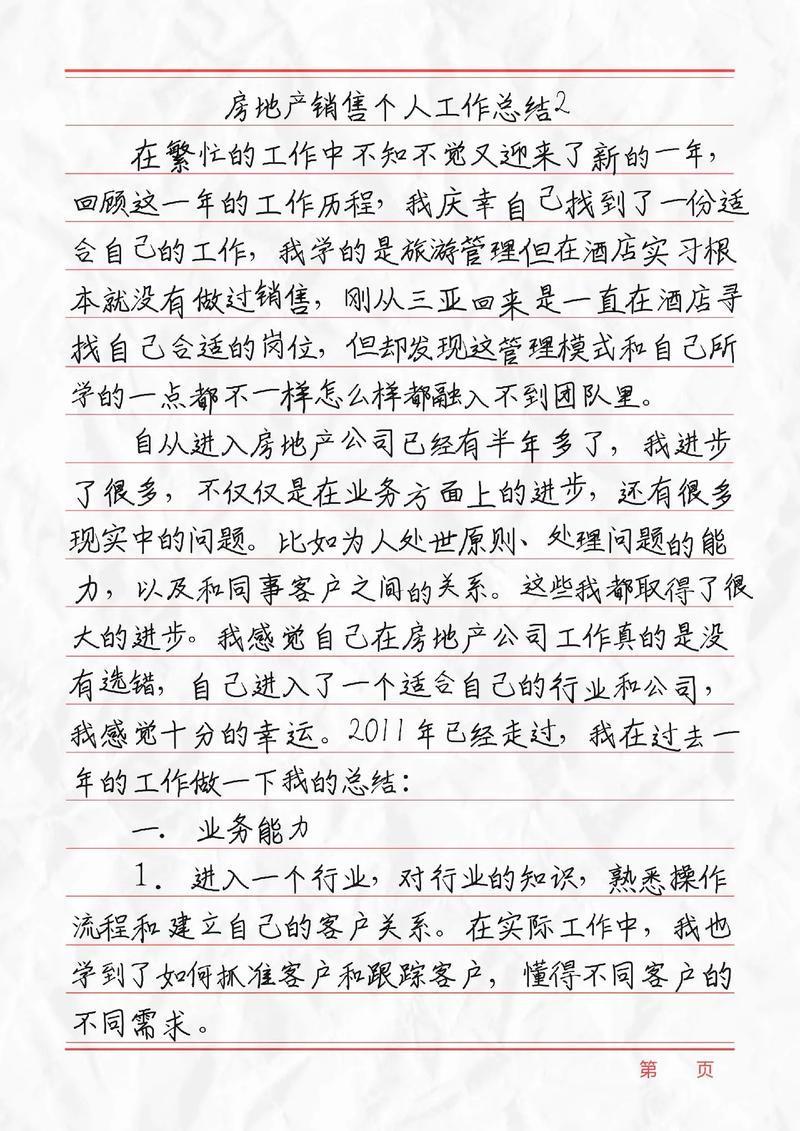 房地产销售个人工作总结2
在繁忙的工作中不知不觉又迎来了新的一年，
回顾这一年的工作历程，我庆幸自己找到了一份适
合自己的工作，我学的是旅游管理但在酒店实习根
本就没有做过销售，刚从三亚回来是一直在酒店寻
找自己合适的岗位，但却发现这管理模式和自己所
学的一点都不一样怎么样都融入不到团队里。
自从进入房地产公司已经有半年多了，我进步
了很多，不仅仅是在业务方面上的进步，还有很多
现实中的问题。比如为人处世原则、处理问题的能
力，以及和同事客户之间的关系。这些我都取得了很
大的进步。我感觉自己在房地产公司工作真的是没
有选错，自己进入了一个适合自己的行业和公司，
我感觉十分的幸运。2011年已经走过，我在过去一
年的工作做一下我的总结：
一． 业务能力
1． 进入一个行业，对行业的知识，熟悉操作
流程和建立自己的客户关系。在实际工作中，我也
学到了如何抓准客户和跟踪客户，懂得不同客户的
不同需求。
第 页